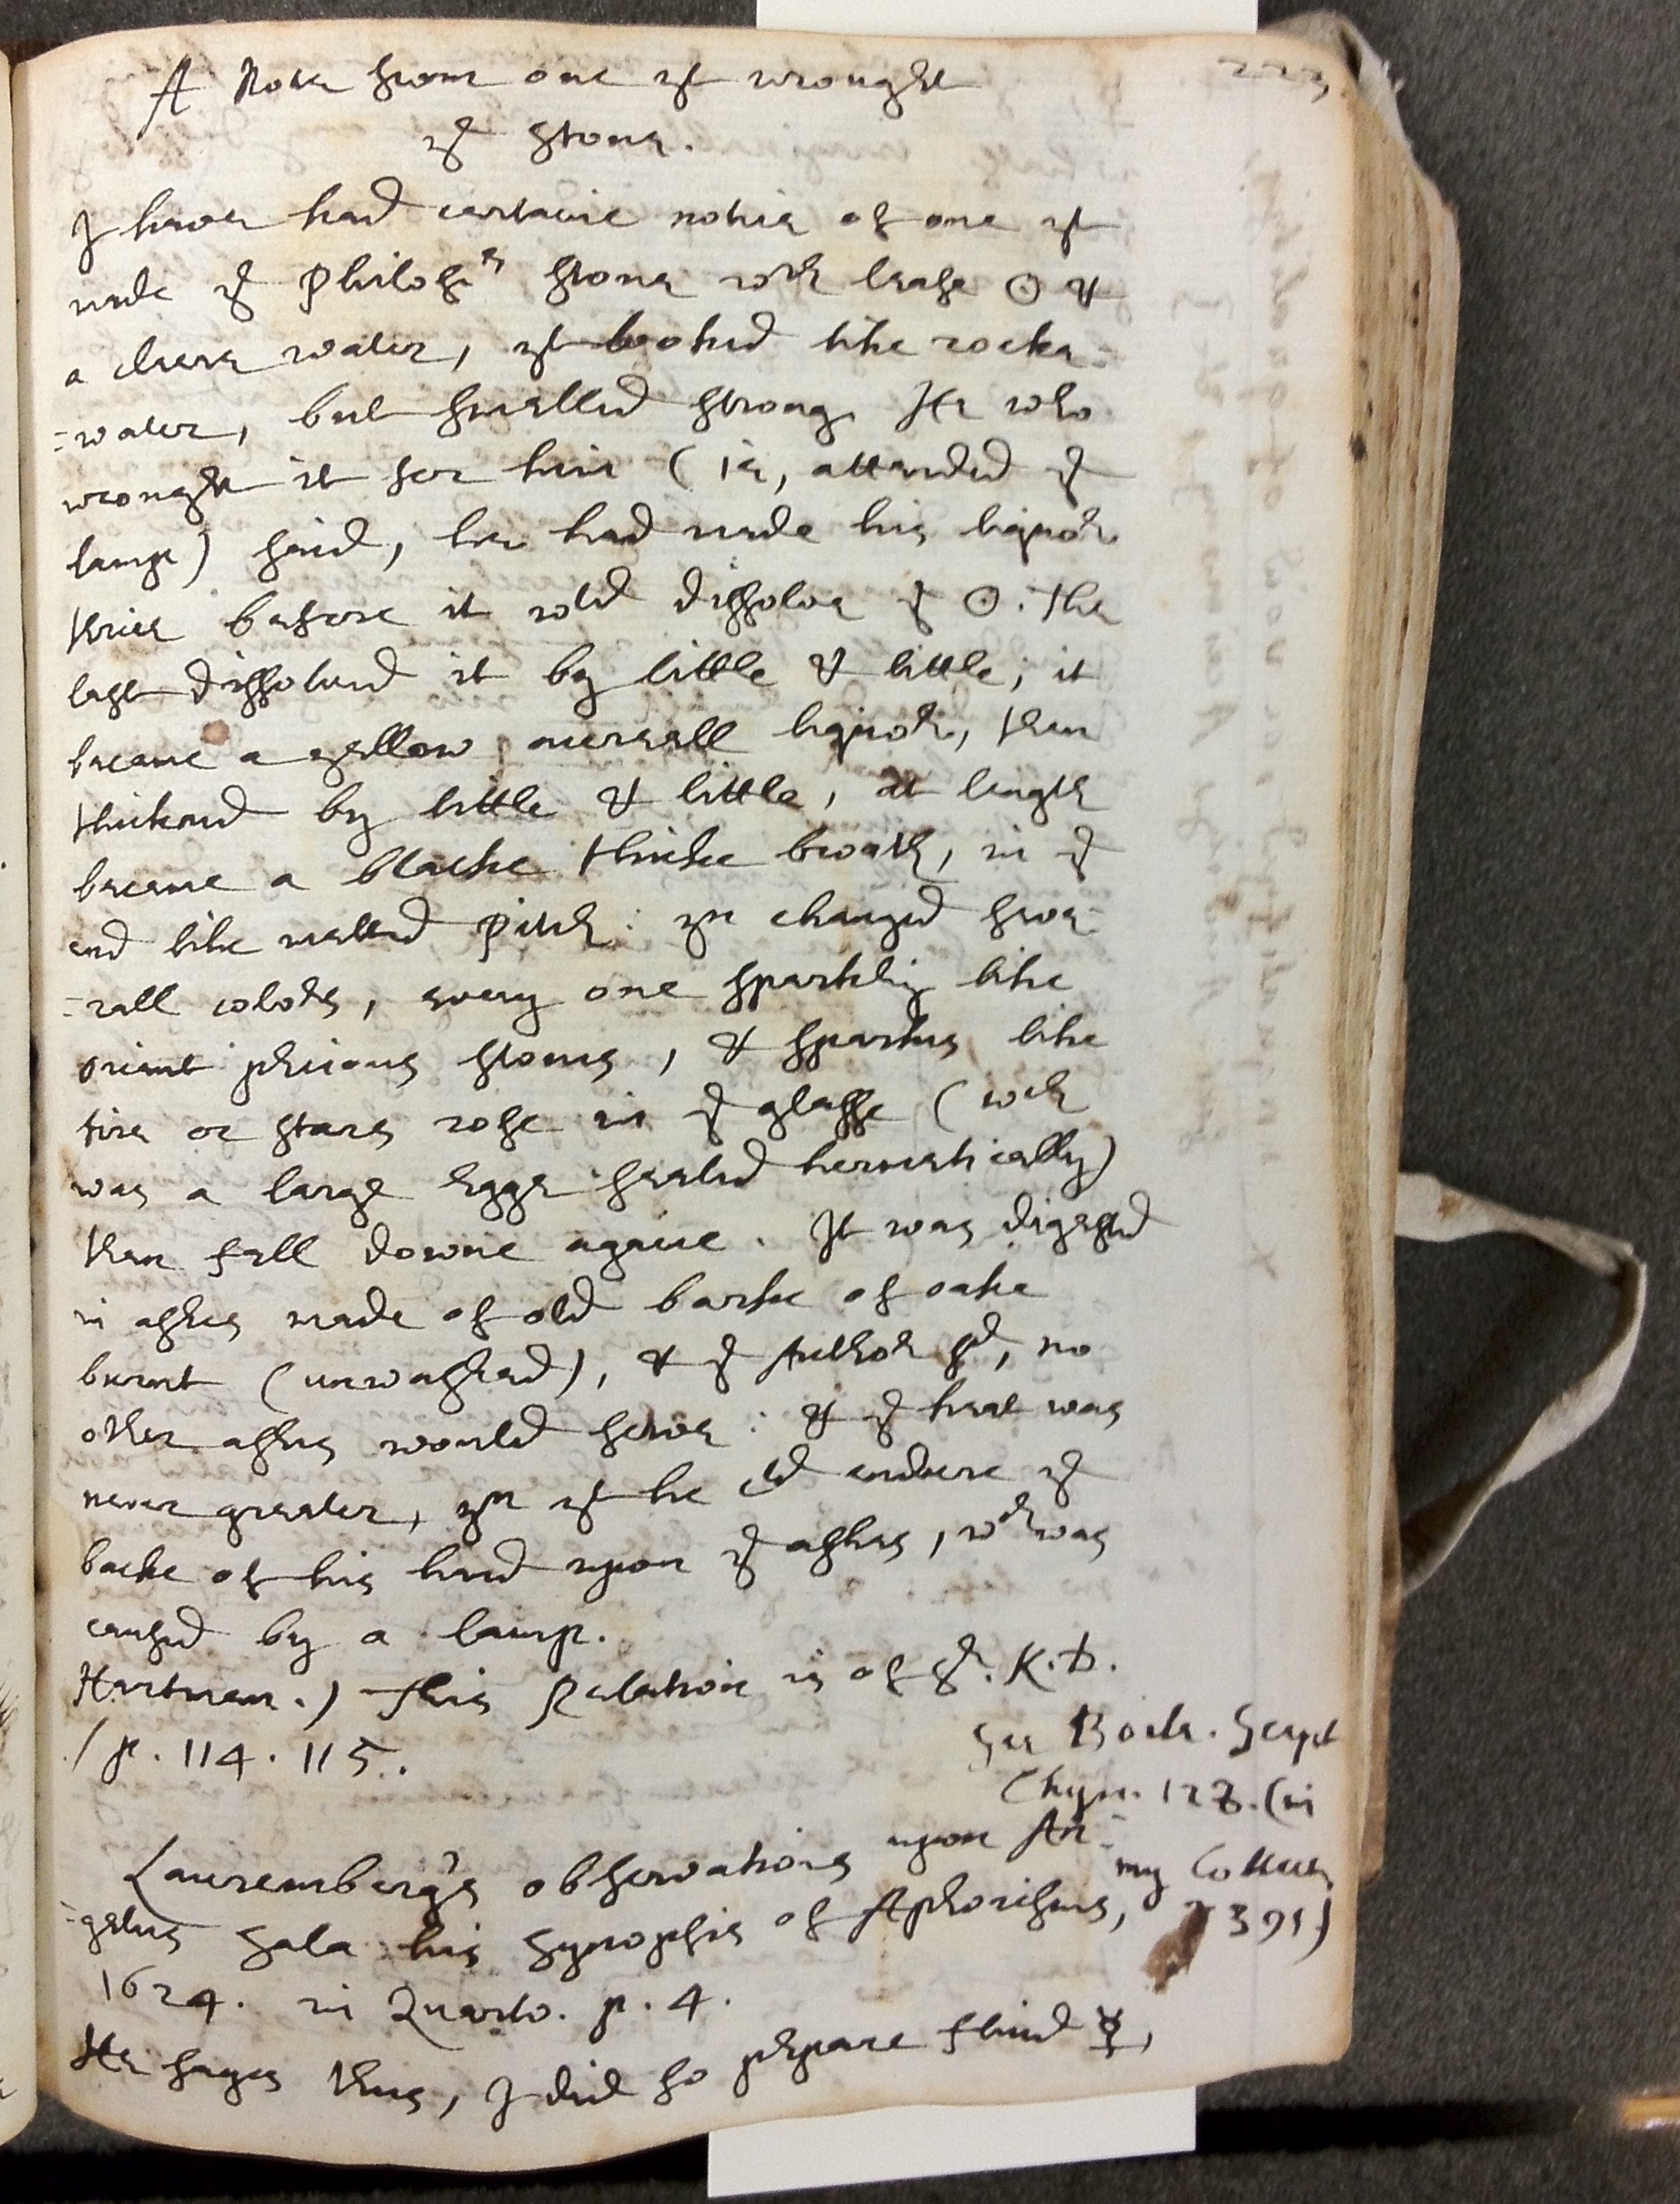 223
A Note from one yt wrought
ye stone.
I have had certaine notice of one yt
made ye Philosrs stone wth leafe ☉ &
a cleere water, yt looked like rocke-
-water, but smelled strong. He who
wrought it for him (ie, attended ye
lamp) said, he had made his liquor
thrice before it wld dissolve ye ☉. the
last dissolued it by little & little; it
became a yellow minerall liquor, then
thickned by little & little, at length
became a blacke thicke broath, in ye
end like melted pitch: yn changed seve-
-rall colors, every one sparkling like
orient pretious stones, & sparkes like
fire or stars rose in ye glasse (wch
was a large Egge sealed hermetically)
then fell downe againe. It was digested
in ashes made of old barke of oake
burnt (unwashed), & ye Author sd, no
other ashes would serve: & ye heat was
never greater, yn yt he cld endure ye
backe of his hand upon ye ashes, wch was
caused by a lamp.
Hartman.) This Relation is of Sr. K. D.
/p. 114. 115.
See Boile. Scept
Chym. 128. (in
my Collues
391)
Lauremberg's observations upon An-
-gelus Sala his synopsis of Aphorisms,
1624. in Quarto. p. 4.
He sayes thus, I did so prepare fluid ☿,